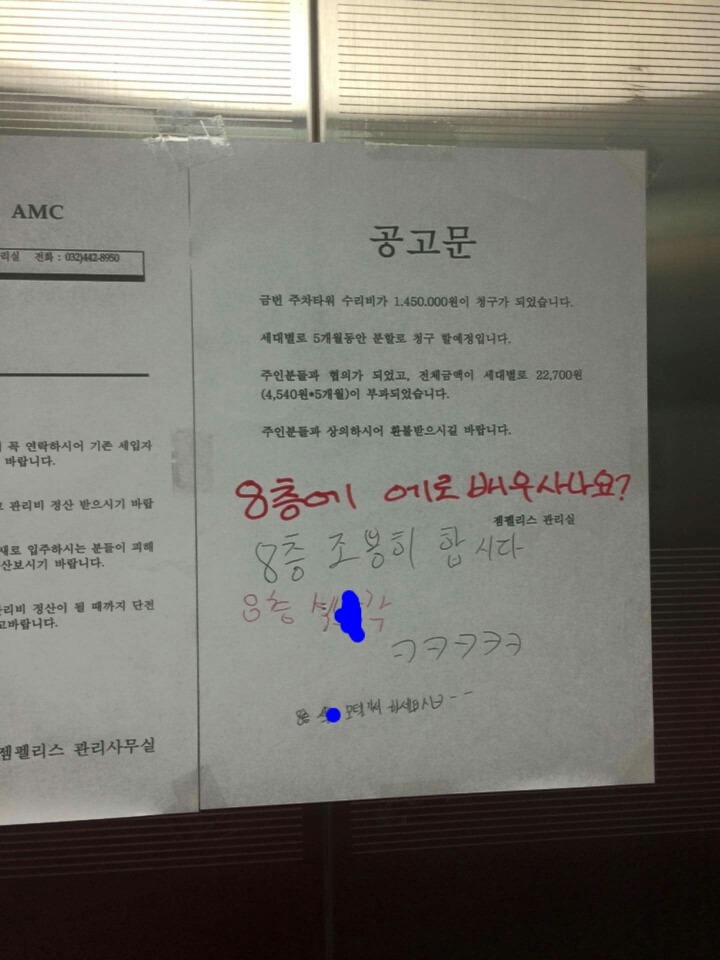 AMC
리실 전화 : 032)442-8950
꼭 연락하시어 기존 세입자
바랍니다.
관리비 정산 받으시기 바랍
새로 입주하시는 분들이 피해
산보시기 바랍니다.
관리비 정산이 될 때까지 단전
고바랍니다.
젬펠리스 관리사무실
공고문
금번 주차타워 수리비가 1.450.000원이 청구가 되었습니다.
세대별로 5개월동안 분할로 청구 할예정입니다.
주인분들과 협의가 되었고, 전체금액이 세대별로 22,700원
(4,540원*5개월)이 부과되었습니다.
주인분들과 상의하시어 환불받으시길 바랍니다.
8층에 에로배우사나요?
젬펠리스 관리실
8층 조용히 합시다
8층
ㅋㅋㅋㅋㅋ
8층 모텔가서 하세요